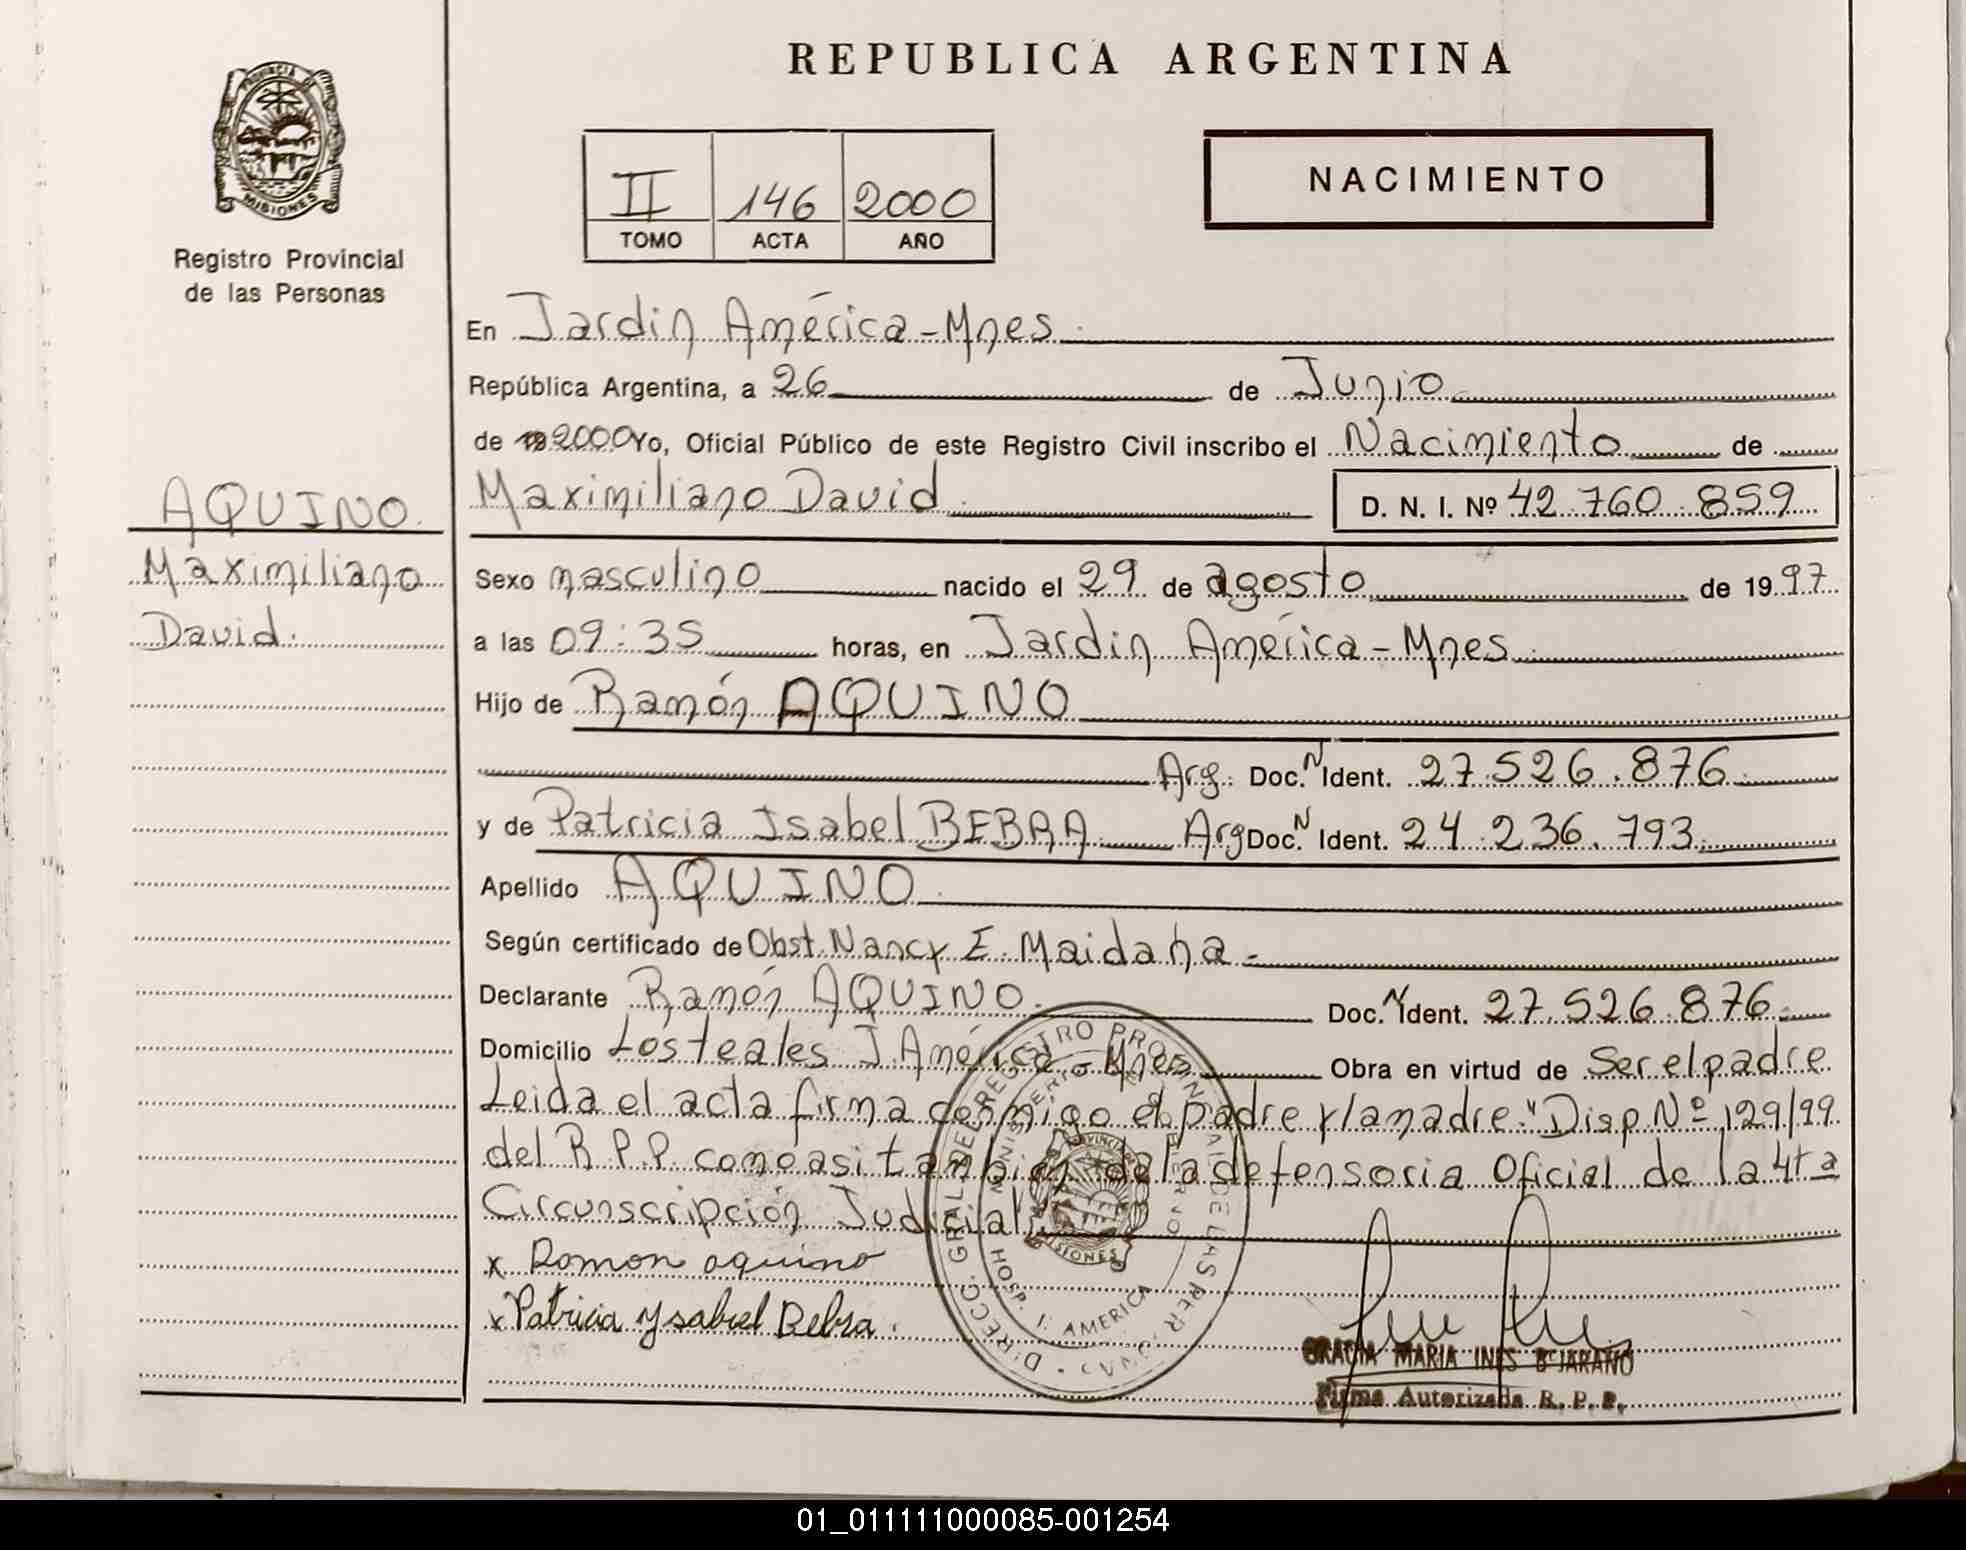 REPUBLICA ARGENTINA
PROVINCIA DE
MISIONES
Registro Provincial
de las Personas
II 146 2000
TOMO ACTA AÑO
NACIMIENTO
En Jardin América - Mnes.
República Argentina, a 26 de Junio
de 19 2000 Yo, Oficial Público de este Registro Civil inscribo el Nacimiento de
AQUINO.
Maximiliano
David.
Maximiliano David D. N. I. Nº 42.760.859
Sexo masculino nacido el 29 de agosto de 1997
a las 09:35 horas, en Jardin América - Mnes.
Hijo de Ramón AQUINO
Arg. Doc. N Ident. 27.526.876
y de Patricia Isabel BEBRA Arg Doc. N Ident. 24.236.793
Apellido AQUINO
Según certificado de Obst. Nancy E. Maidana -
Declarante Ramón AQUINO. Doc. N Ident. 27.526.876
Domicilio Los teales J. América - Mnes Obra en virtud de Ser el padre
Leida el acta firma conmigo el padre y la madre. "Disp. Nº 129/99
del R.P.P. como asi tambien de la defensoria Oficial de la 4ta
Circunscripción Judicial"
x Ramon aquino
x Patricia Ysabel Bebra.
DIRECC. GRAL. DEL REGISTRO PROVINCIAL DE LAS PERSONAS
MINISTERIO DE GOBIERNO
HOSP. J. AMERICA
PROVINCIA
MISIONES
GRACIA MARIA INES BEJARANO
Firma Autorizada R. P. P.
01_011111000085-001254